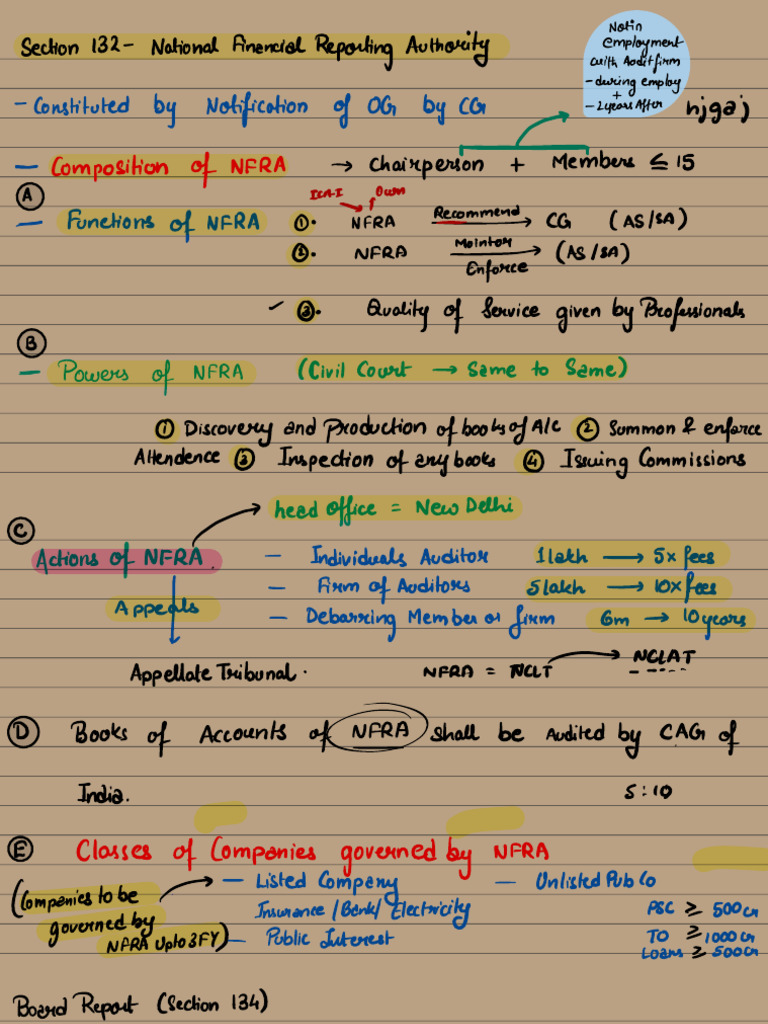 Section 132 - National Financial Reporting Authority
Not in
Employment
with Audit firm
- during employ
+
- 2 years After
- Constituted by Notification of OG by CG
njgaj
- Composition of NFRA → Chairperson + Members ≤ 15
A
ICA-I Own
- Functions of NFRA ①. NFRA Recommend → CG (AS/SA)
②. NFRA Monitor Enforce → (AS/SA)
✓ ③. Quality of Service given by Professionals
B
- Powers of NFRA (Civil Court → Same to Same)
① Discovery and Production of books of A/c ② Summon & enforce
Attendence ③ Inspection of any books ④ Issuing Commissions
head office = New Delhi
C
Actions of NFRA. - Individuals Auditor 1 lakh → 5x fees
- Firm of Auditors 5 lakh → 10x fees
Appeals - Debarring Member or firm 6m → 10 years
Appellate Tribunal. NFRA = NCLT → NCLAT
D Books of Accounts of NFRA shall be Audited by CAG of
India. 5:10
E Classes of Companies governed by NFRA
(Companies to be → - Listed Company - Unlisted Pub Co
governed by Insurance / Bank / Electricity PSC ≥ 500cr
NFRA Upto 3FY) - Public Interest TO ≥ 1000cr
Loans ≥ 500cr
Board Report (Section 134)